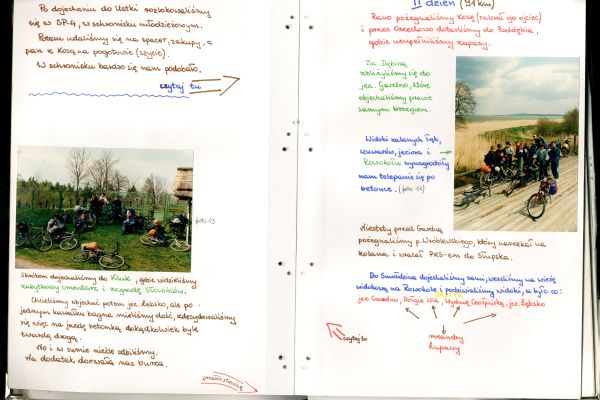 Po dojechaniu do Ustki rozlokowaliśmy
się w SP-4, w schronisku młodzieżowym.
Potem udaliśmy się na spacer, zakupy, a
pan z Kosą na pogotowie (szycie).
W schronisku bardzo się nam podobało.
czytaj tu
foto 13
Skrótem dojechaliśmy do Kluk, gdzie widzieliśmy
zabytkowy cmentarz i zagrodę Słowińców.
Chcieliśmy objechać potem jez. Łebsko, ale po
jednym kawałku bagna mieliśmy dość, zdecydowaliśmy
się więc na jazdę betonką, dokądkolwiek byle
twardą drogą.
No i w sumie nieźle odbiliśmy.
Na dodatek dorwała nas burza.
przewiń stronicę
II dzień (91 km)
Rano pożegnaliśmy Kosę (zabrał go ojciec)
i przez Orzechowo dotarliśmy do Poddębia,
gdzie uzupełniliśmy zapasy.
Za Dębiną
zbliżyliśmy się do
jez. Gardno, które
objechaliśmy prawie
samym brzegiem.
Widoki zalanych łąk,
szuwarów, jeziora i
Rowokołu wynagrodziły
nam telepanie się po
betonce. (foto 11)
Niestety przed Gardną
pożegnaliśmy p. Wróblewskiego, który narzekał na
kolana i wracał PKS-em do Słupska.
Do Smołdzina dojechaliśmy sami, weszliśmy na wieżę
widokową na Rowokole i podziwialiśmy widoki, a było co:
jez. Gardno, Dołgie Wlk., Wydmę Czołpińską, jez. Łebsko
meandry
Łupawy
czytaj to